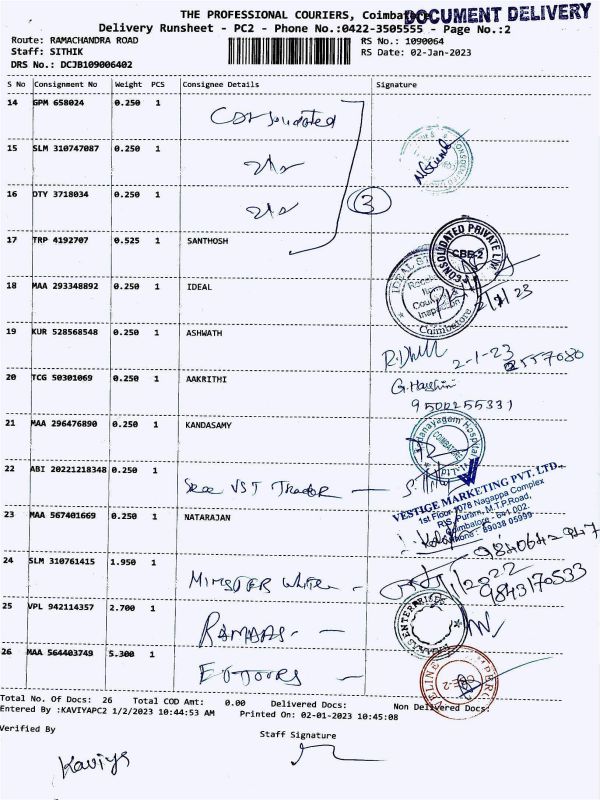 THE PROFESSIONAL COURIERS, Coimbatore
DOCUMENT DELIVERY
Delivery Runsheet - PC2 - Phone No.:0422-3505555 - Page No.:2
Route: RAMACHANDRA ROAD RS No.: 1090064
Staff: SITHIK RS Date: 02-Jan-2023
DRS No.: DCJB109006402
S No Consignment No Weight PCS Consignee Details Signature
14 GPM 658024 0.250 1 Consolidated
15 SLM 310747087 0.250 1
16 DTY 3718034 0.250 1
3
17 TRP 4192707 0.525 1 SANTHOSH
CONSOLIDATED PRIVATE LIM
CBE-2
18 MAA 293348892 0.250 1 IDEAL
Coimbatore
2/1/23
19 KUR 528568548 0.250 1 ASHWATH
2-1-23
20 TCG 50301069 0.250 1 AAKRITHI
9500255331
21 MAA 296476890 0.250 1 KANDASAMY
COIMBATORE
22 ABI 20221218348 0.250 1 Sree VST Trador
VESTIGE MARKETING PVT. LTD.
1st Floor 1078 Nagappa Complex
R.S. Puram, M.T.P.Road,
Coimbatore - 641 002.
Phone : 89038 05999
23 MAA 567401669 0.250 1 NATARAJAN
24 SLM 310761415 1.950 1 MINISTER White
9843170533
25 VPL 942114357 2.700 1 RAMAAS
ENTERPRISES
26 MAA 564403749 5.300 1
CBE-2
Total No. Of Docs: 26 Total COD Amt: 0.00 Delivered Docs: Non Delivered Docs:
Entered By :KAVIYAPC2 1/2/2023 10:44:53 AM Printed On: 02-01-2023 10:45:08
Verified By Staff Signature
Kaviya